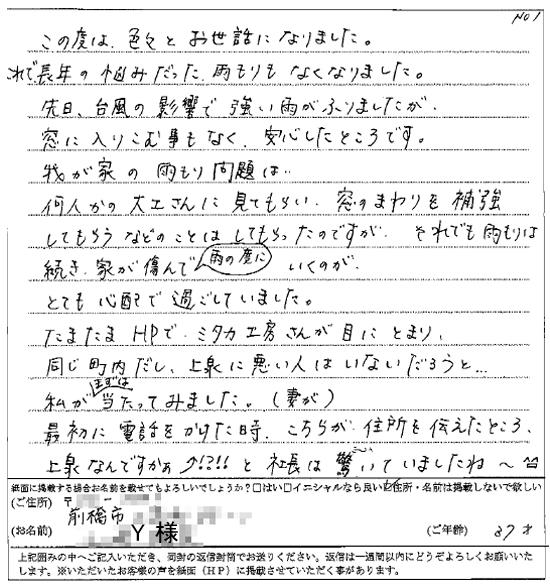 NO1
この度は、色々とお世話になりました。
これで長年の悩みだった、雨もりもなくなりました。
先日、台風の影響で強い雨がふりましたが、
窓に入りこむ事もなく、安心したところです。
我が家の雨もり問題は…
何人かの大工さんに見てもらい、窓のまわりを補強
してもらうなどのことはしてもらったのですが、それでも雨もりは
続き、家が傷んで雨の度にいくのが、
とても心配で過ごしていました。
たまたまHPで、ミタカ工房さんが目にとまり、
同じ町内だし、上泉に悪い人はいないだろうと…
私がまずは当たってみました。(妻が)
最初に電話をかけた時、こちらが住所を伝えたところ、
上泉なんですかぁ⤴!?!!と社長は驚いていましたね〜^^
紙面に掲載する場合お名前を載せてもよろしいでしょうか?□はい□イニシャルなら良い☑住所・名前は掲載しないで欲しい
(ご住所) 〒
前橋市
(お名前) Y 様 (ご年齢) 37才
上記囲みの中へご記入いただき、同封の返信封筒でお送りください。返信は一週間以内にどうぞよろしくお願いいた
します。※いただいたお客様の声を紙面(HP)に掲載させていただく事があります。